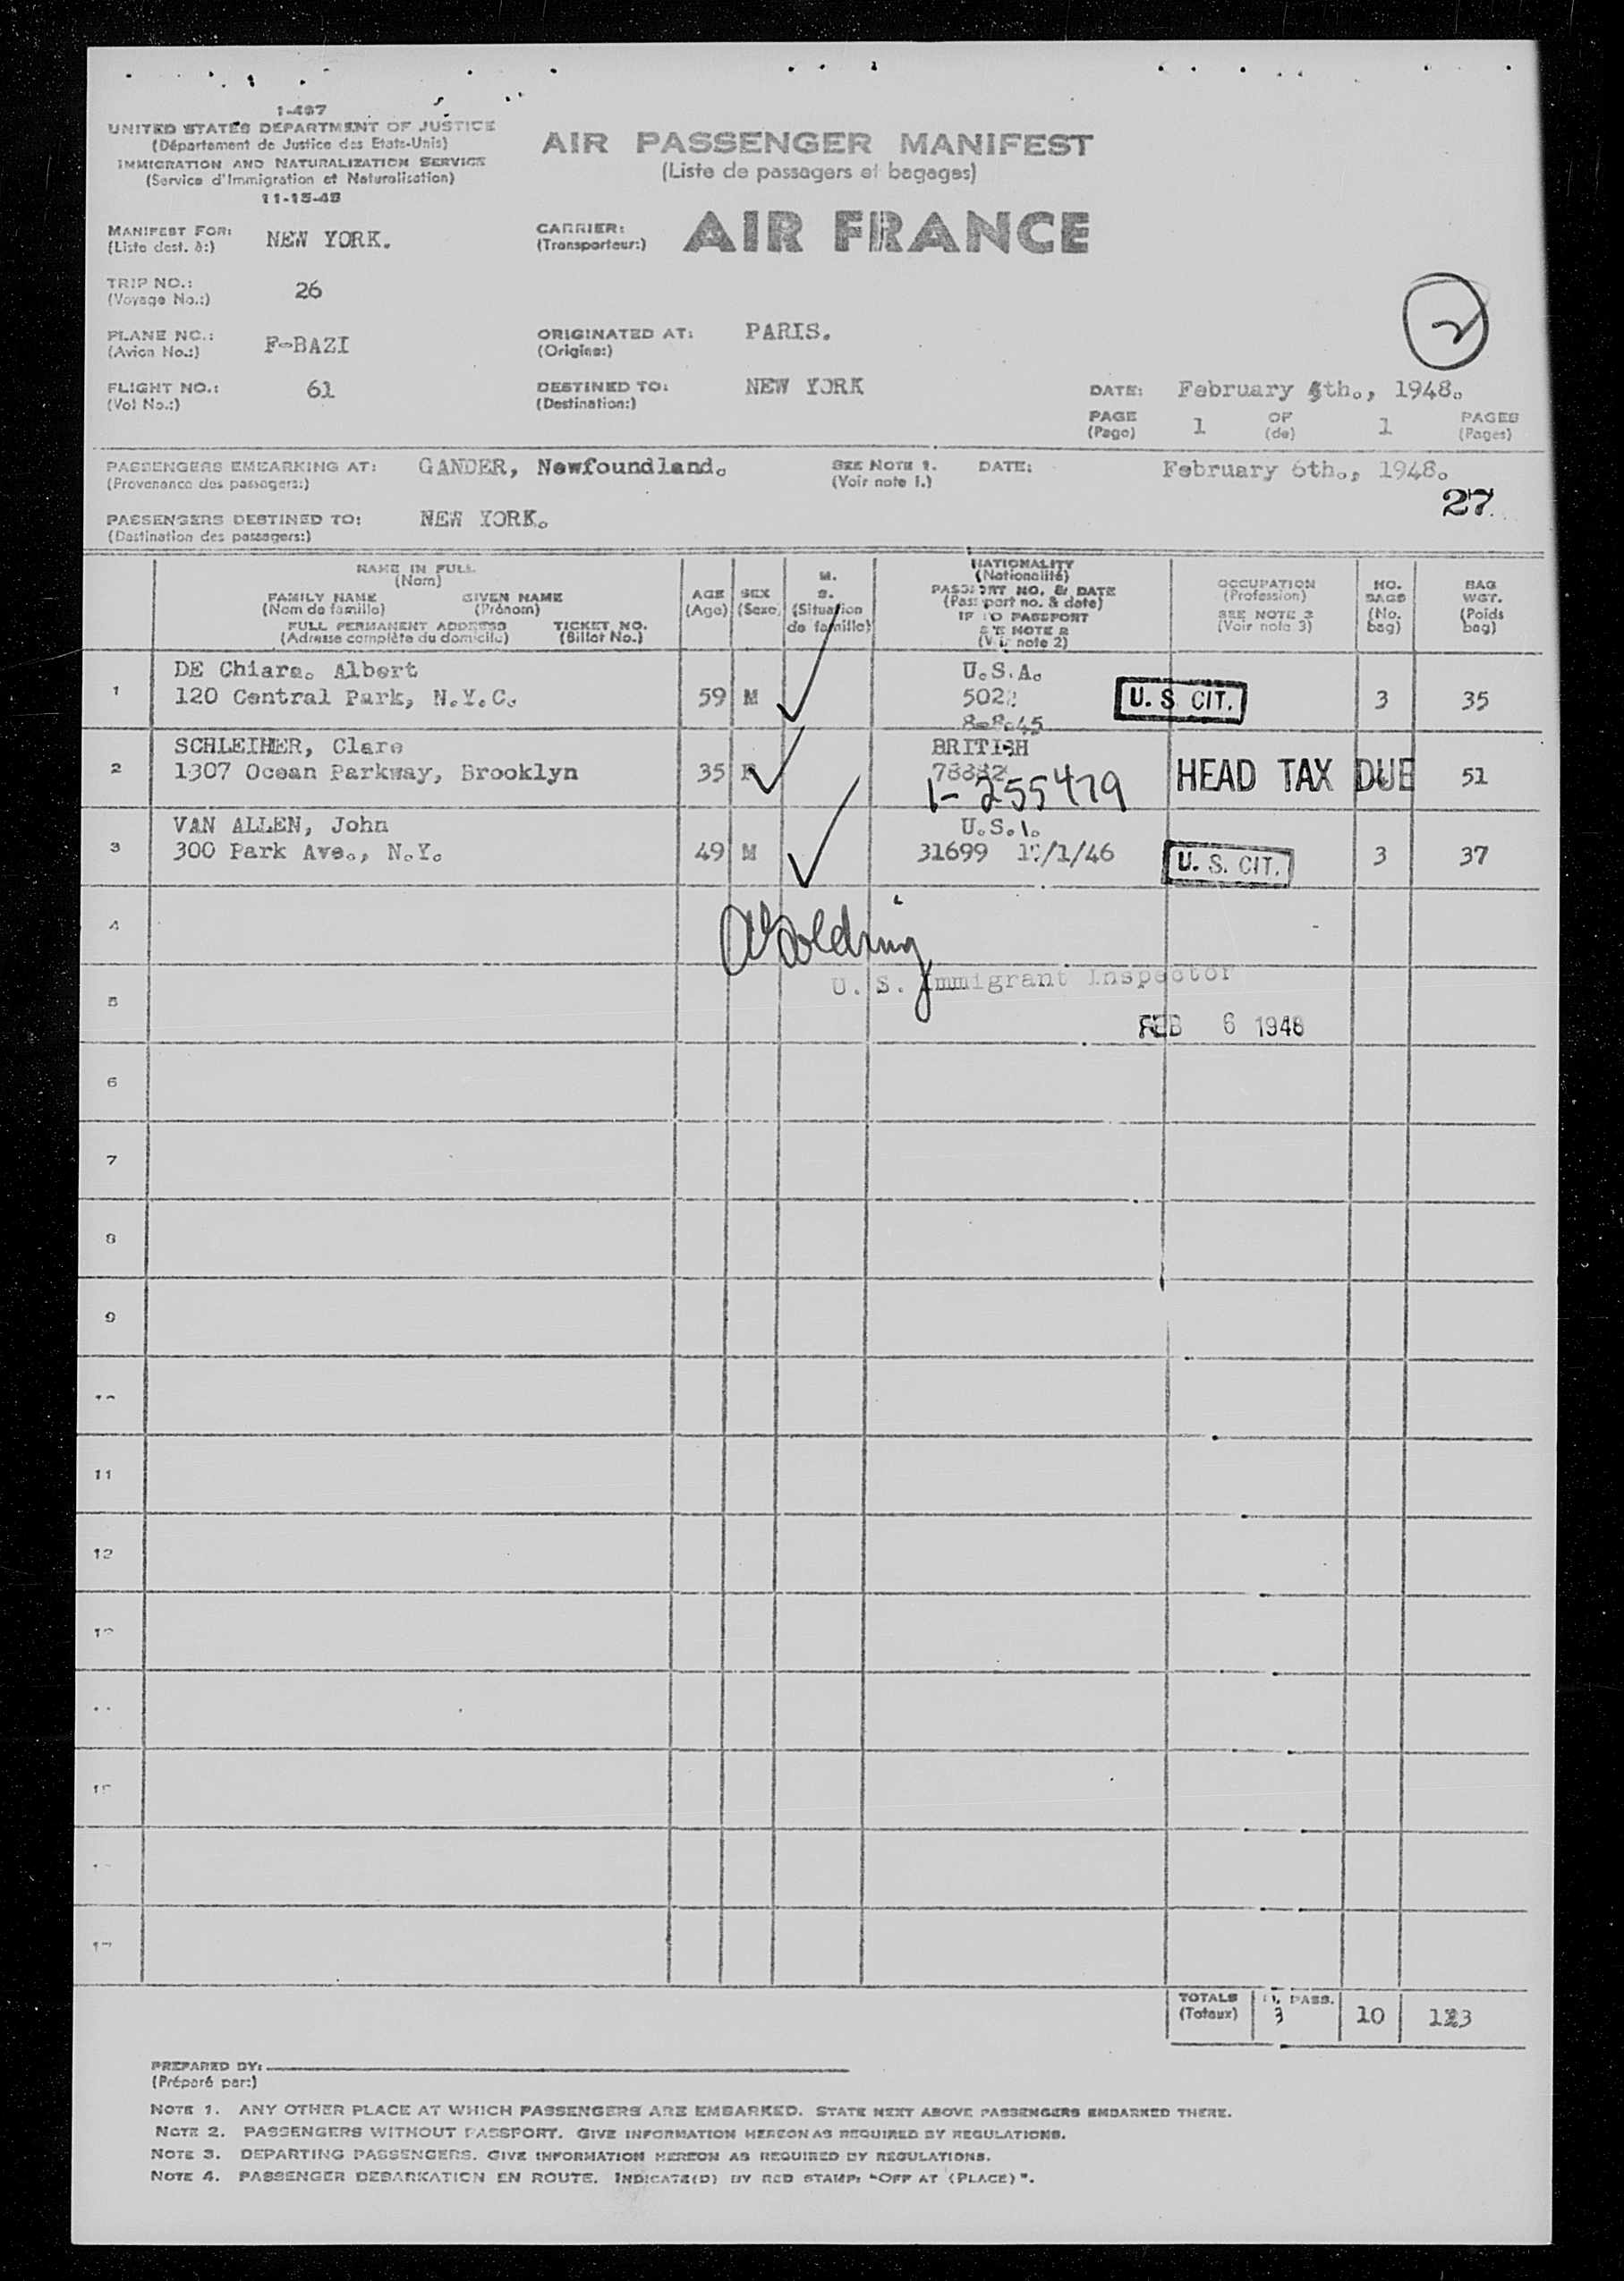 1-467
UNITED STATES DEPARTMENT OF JUSTICE
(Département de Justice des Etats-Unis)
IMMIGRATION AND NATURALIZATION SERVICE
(Service d'Immigration et Naturalisation)
11-15-45
AIR PASSENGER MANIFEST
(Liste de passagers et bagages)
MANIFEST FOR: NEW YORK.
(Liste dest. à:)
CARRIER: AIR FRANCE
(Transporteur:)
TRIP NO.: 26
(Voyage No.:)
2
PLANE NO.: F-BAZI
(Avion No.:)
ORIGINATED AT: PARIS.
(Origine:)
FLIGHT NO.: 61
(Vol No.:)
DESTINED TO: NEW YORK
(Destination:)
DATE: February th., 1948.
PAGE 1 OF 1 PAGES
(Page) (de) (Pages)
PASSENGERS EMBARKING AT: GANDER, Newfoundland. SEE NOTE 1. DATE: February 6th., 1948.
(Provenance des passagers:) (Voir note 1.)
27
PASSENGERS DESTINED TO: NEW YORK.
(Destination des passagers:)
NAME IN FULL
(Nom)
FAMILY NAME GIVEN NAME
(Nom de famille) (Prénom)
FULL PERMANENT ADDRESS TICKET NO.
(Adresse complète du domicile) (Billet No.)
AGE
(Age)
SEX
(Sexe)
M.
S.
(Situation
de famille)
NATIONALITY
(Nationalité)
PASSPORT NO. & DATE
(Passport no. & date)
IF NO PASSPORT
SEE NOTE 2
(Voir note 2)
OCCUPATION
(Profession)
SEE NOTE 3
(Voir note 3)
NO.
BAGS
(No.
bag)
BAG
WGT.
(Poids
bag)
DE Chiara. Albert U.S.A.
1 120 Central Park, N.Y.C. 59 M 5022 U. S. CIT. 3 35
8-8-45
SCHLEIMER, Clare BRITISH
2 1307 Ocean Parkway, Brooklyn 35 F 78882 HEAD TAX DUE 51
1-255479
VAN ALLEN, John U.S.A.
3 300 Park Ave., N.Y. 49 M 31699 /1/46 U. S. CIT. 3 37
4
Golding
U. S. Immigrant Inspector
5
FEB 6 1948
6
7
8
9
10
11
12
TOTALS PASS.
(Totaux) 3 10 123
PREPARED BY:
(Préparé par:)
NOTE 1. ANY OTHER PLACE AT WHICH PASSENGERS ARE EMBARKED. STATE NEXT ABOVE PASSENGERS EMBARKED THERE.
NOTE 2. PASSENGERS WITHOUT PASSPORT. GIVE INFORMATION HEREON AS REQUIRED BY REGULATIONS.
NOTE 3. DEPARTING PASSENGERS. GIVE INFORMATION HEREON AS REQUIRED BY REGULATIONS.
NOTE 4. PASSENGER DEBARKATION EN ROUTE. INDICATE(D) BY RED STAMP: "OFF AT (PLACE)".